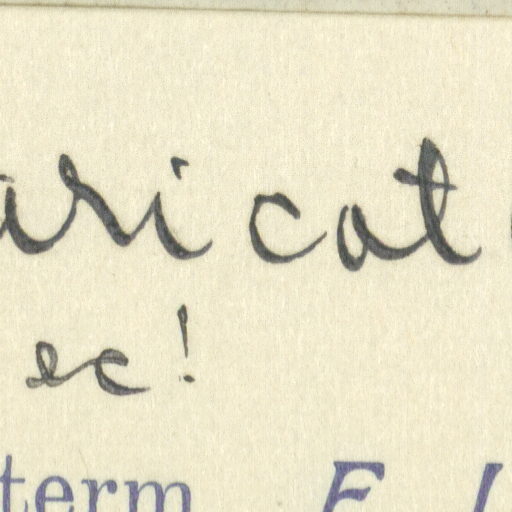 aricat
ec!
term F. L